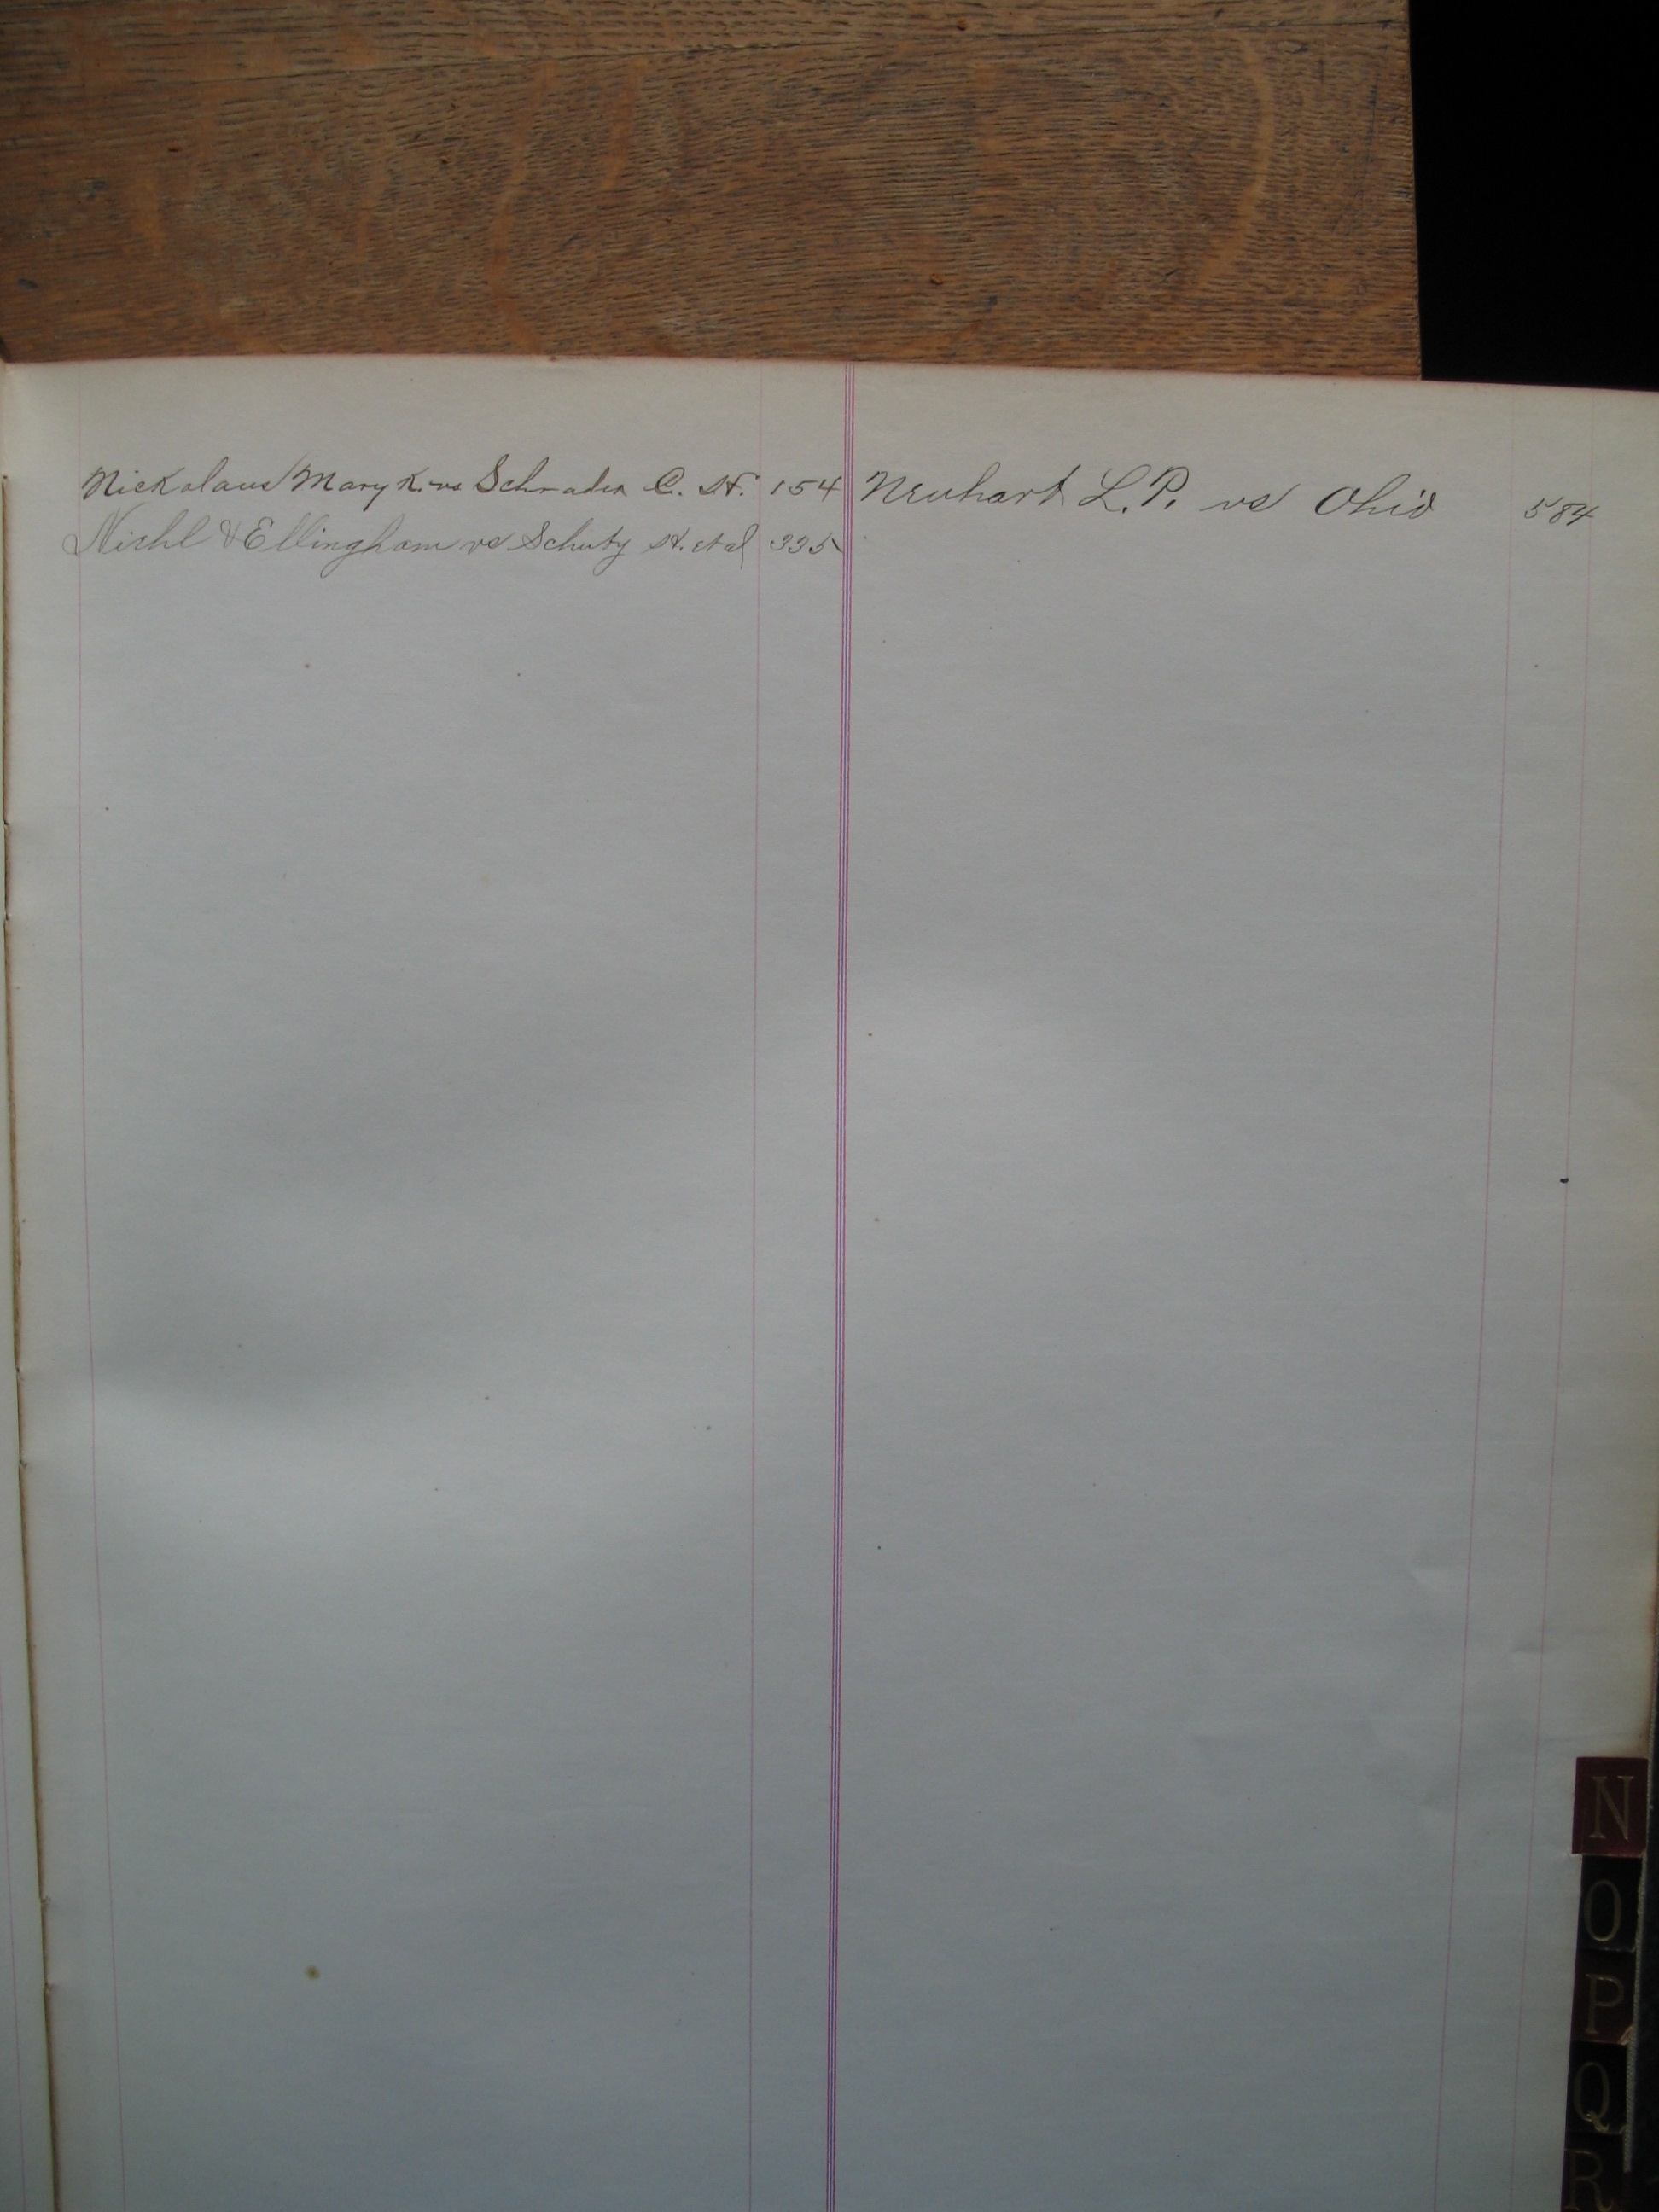 Nickolaus Mary K. vs Schrader C. H. 154
Niehl & Ellingham vs Schuty H. et al 335
Neuhart L. P. vs Ohio 584
N
O
P
Q
R